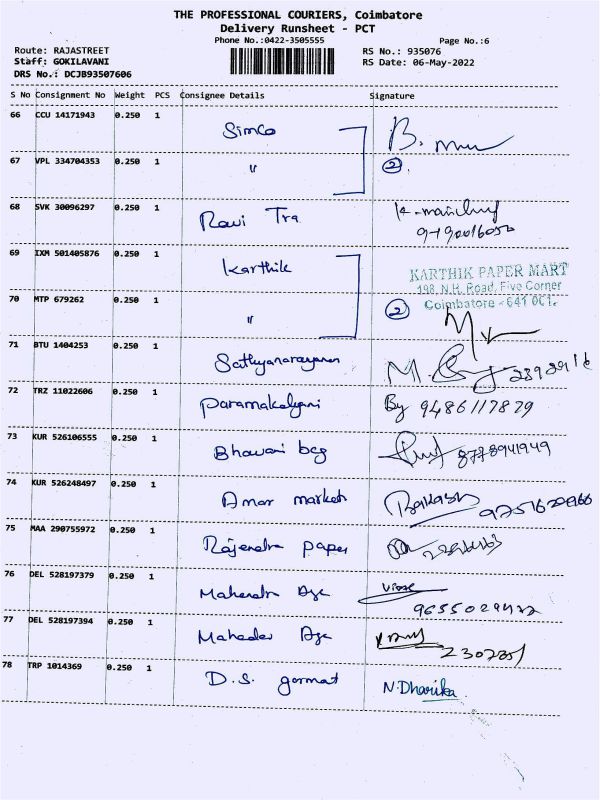 THE PROFESSIONAL COURIERS, Coimbatore
Delivery Runsheet - PCT
Phone No.:0422-3505555
Page No.:6
Route: RAJASTREET
RS No.: 935076
Staff: GOKILAVANI
RS Date: 06-May-2022
DRS No.: DCJB93507606
S No Consignment No Weight PCS Consignee Details Signature
66 CCU 14171943 0.250 1 Simco B.
67 VPL 334704353 0.250 1 " 2
68 SVK 30096297 0.250 1 Ravi Tra
69 IXM 501405876 0.250 1 Karthik
KARTHIK PAPER MART
198, N.H. Road, Five Corner
Coimbatore - 641 001.
70 MTP 679262 0.250 1 " 2
71 BTU 1404253 0.250 1 Sathyanarayanan
72 TRZ 11022606 0.250 1 Paramakalyani By 9486117879
73 KUR 526106555 0.250 1 Bhavani bag 8778941949
74 KUR 526248497 0.250 1 Amar market
75 MAA 290755972 0.250 1 Rajendra paper
76 DEL 528197379 0.250 1 Mahendra Age
77 DEL 528197394 0.250 1 Mahadev Age
78 TRP 1014369 0.250 1 D.S. gormat N.Dharika